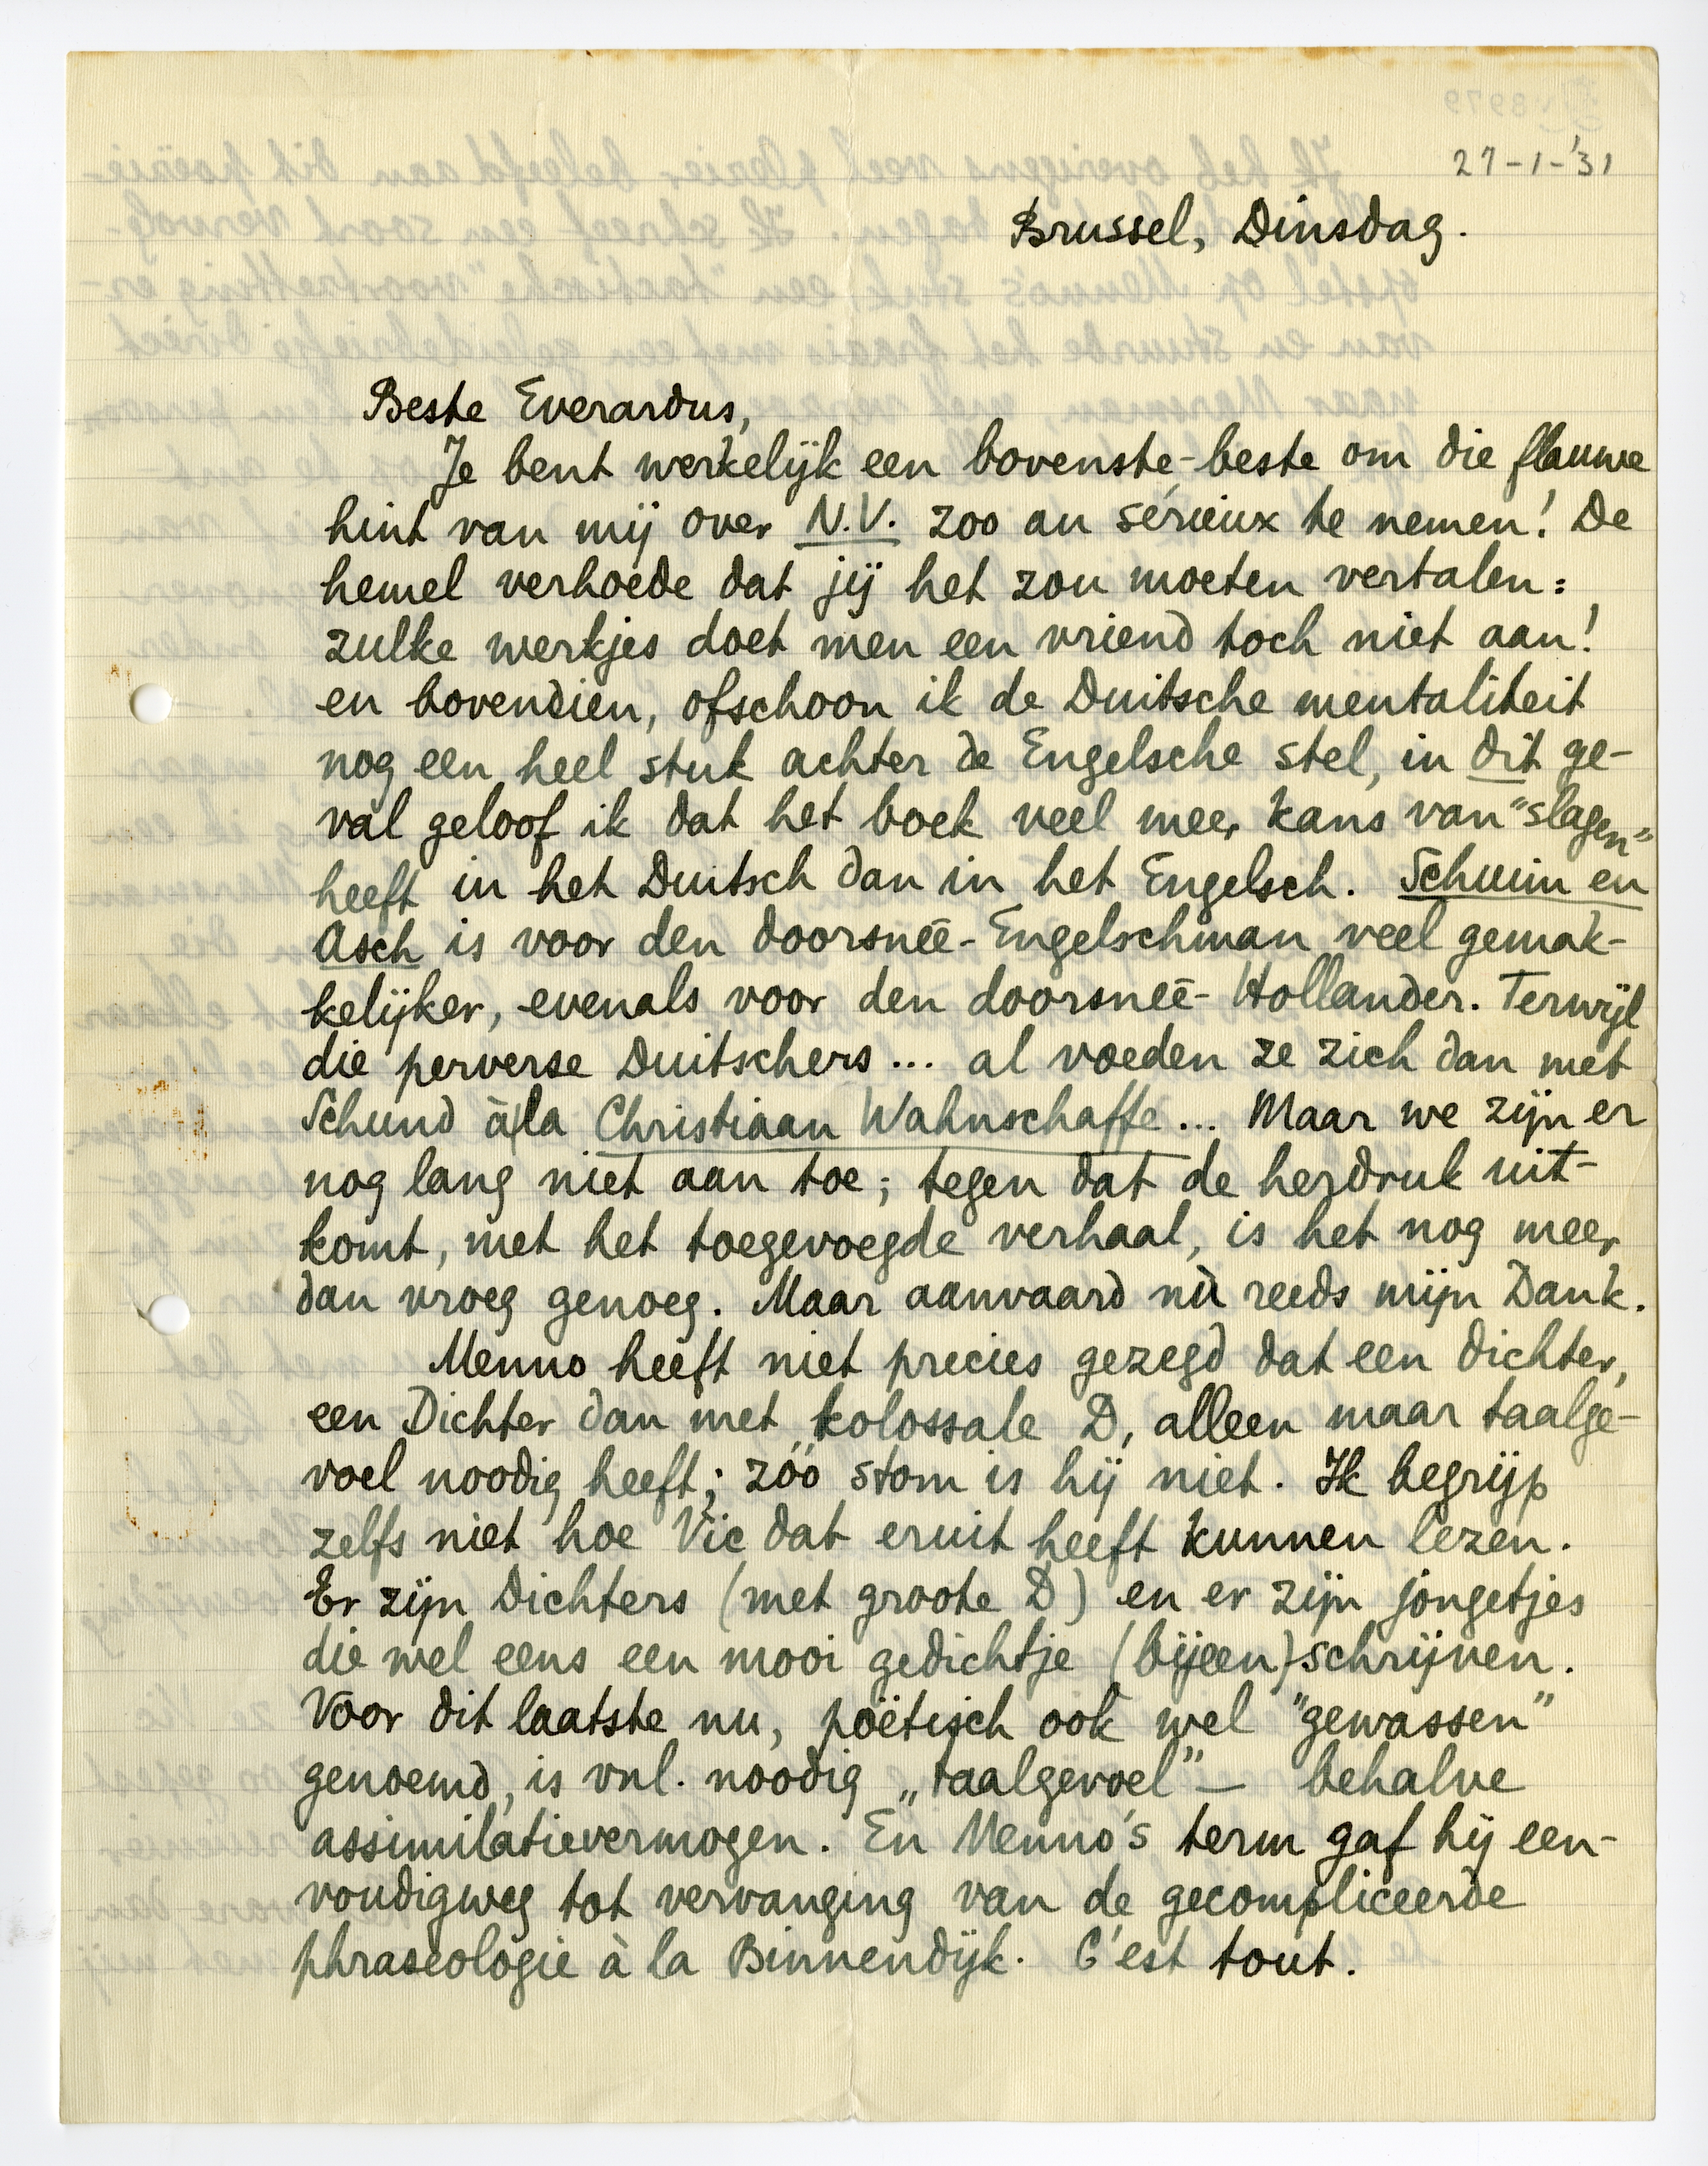 27-1-'31
Brussel, Dinsdag.
Beste Everardus,
Je bent werkelijk een bovenste-beste om die flauwe
hint van mij over N.V. zoo au sérieux te nemen! De
hemel verhoede dat jij het zou moeten vertalen:
zulke werkjes doet men een vriend toch niet aan!
en bovendien, ofschoon ik de Duitsche mentaliteit
nog een heel stuk achter de Engelsche stel, in dit ge-
val geloof ik dat het boek veel meer kans van "slagen"
heeft in het Duitsch dan in het Engelsch. Schuim en
Asch is voor den doorsneê-Engelschman veel gemak-
kelijker, evenals voor den doorsneê-Hollander. Terwijl
die perverse Duitschers... al voeden ze zich dan met
Schund à la Christiaan Wahnschaffe... Maar we zijn er
nog lang niet aan toe; tegen dat de herdruk uit-
komt, met het toegevoegde verhaal, is het nog meer
dan vroeg genoeg. Maar aanvaard nù reeds mijn Dank.
Menno heeft niet precies gezegd dat een dichter,
een Dichter dan met kolossale D, alleen maar taalge-
voel noodig heeft; zóó stom is hij niet. Ik begrijp
zelfs niet hoe Vic dat eruit heeft kunnen lezen.
Er zijn Dichters (met groote D) en er zijn jongetjes
die wel eens een mooi gedichtje (bijeen)schrijven.
Voor dit laatste nu, poëtisch ook wel "gewassen"
genoemd, is vnl. noodig „taalgevoel" — behalve
assimilatievermogen. En Menno's term gaf hij een-
voudigweg tot vervanging van de gecompliceerde
phraseologie à la Binnendijk. C'est tout.